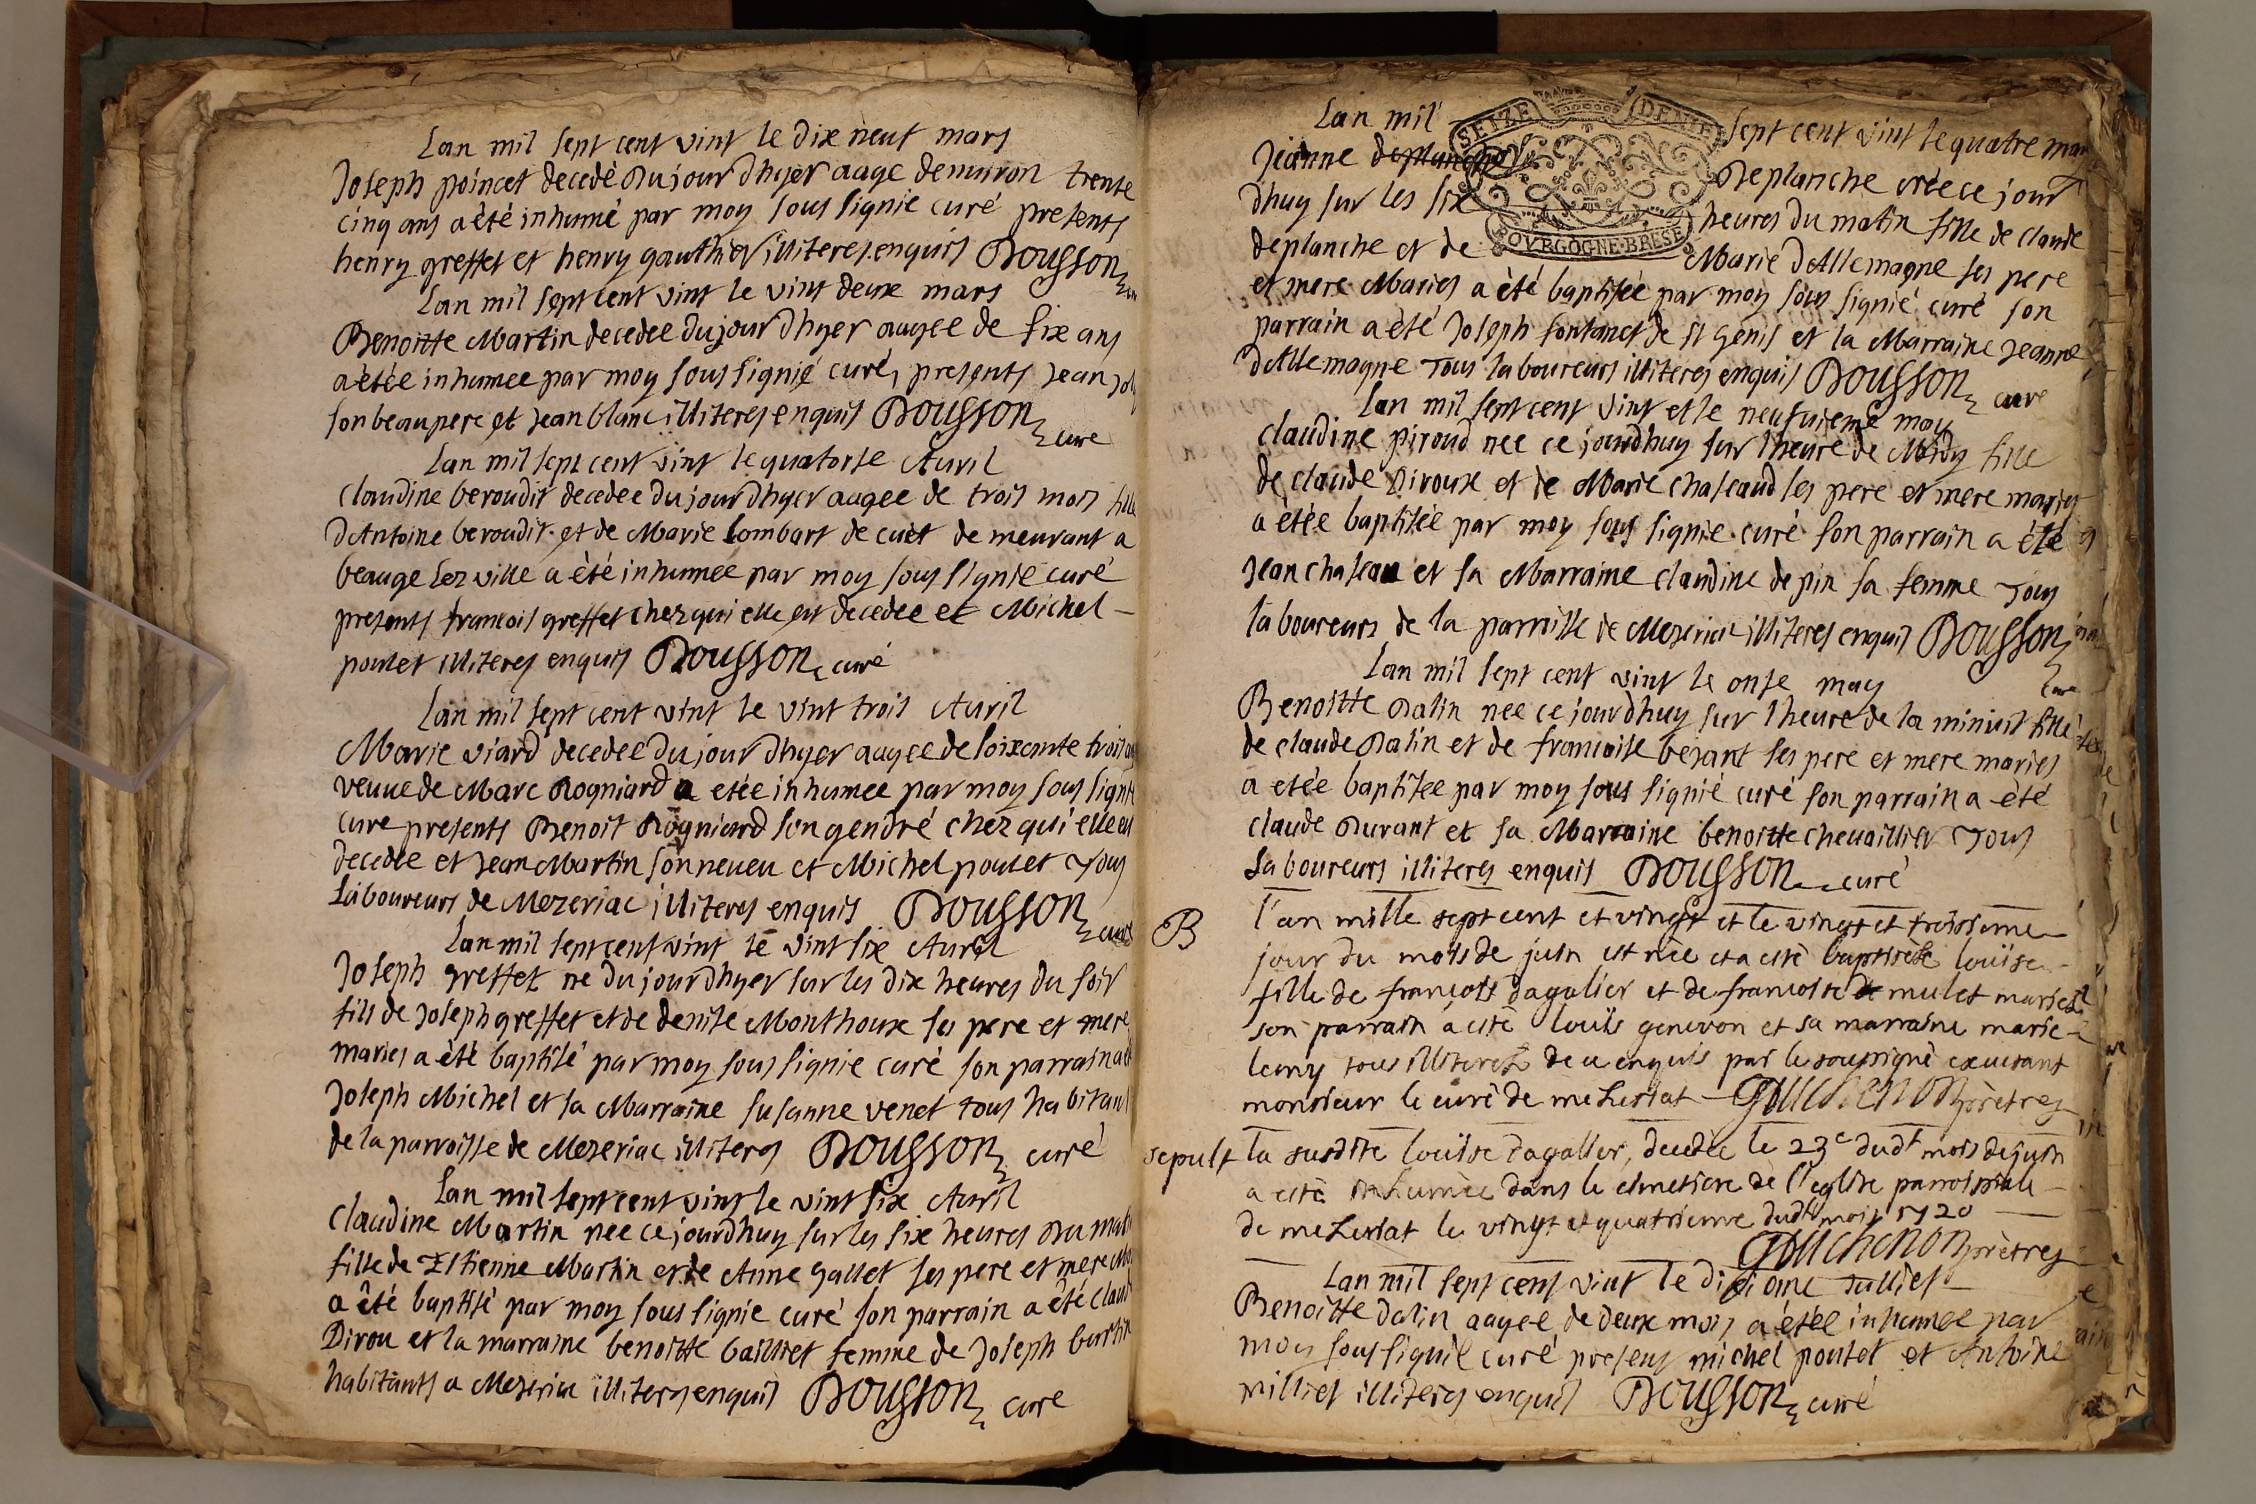 Lan mil sept cent vint le dix neuf mars
Joseph poincet decedé du jour dhyer aage denuiron trente
cinq ans a été inhumé par moy sous signie curé presents
henry greffet et henry gauthier illiteres enquis Dousson
Lan mil sept cent vint le vint deux mars
Benoitte Martin decedee du jour dhyer aagee de six ans
a étée inhumee par moy sous signié curé, presents jean joly
son beau pere et jean blanc illiteres enquis Dousson curé
Lan mil sept cent vint le quatorse Auril
claudine beroudit decedee du jour dhyer aagee de trois mois fille
dAntoine beroudit et de Marie Lombart de cuet de meurant a
beauge lez ville a été inhumee par moy sous signié curé
presents francois greffet chez qui elle est decedee et Michel
poulet illiteres enquis Dousson curé
Lan mil sept cent vint le vint trois Auril
Marie viard decedee du jour dhyer aagee de soixcente trois
veuue de Marc Rogniard a etée inhumee par moy sous signié
cure presents Benoit Rogniard son gendré chez qui elle est
decedee et jean Martin son neueu et Michel poulet Tous
Laboureurs de Mezeriac illiteres enquis Dousson curé
Lan mil sept cent vint le vint six Auril
Joseph greffet ne du jour dhyer sur les dix heures du soir
fils de Joseph greffet et de denise Monthoux ses pere et mere
maries a été baptisé par moy sous signie curé son parrain a
Joseph Michel et sa Marraine susanne venet tous habitant
de la parroisse de Mezeriac illiteres Dousson curé
Lan mil sept cent vint le vint six Auril
claudine Martin nee ce jourdhuy sur les six heures du mat
fille de Estienne Martin et de Anne gallet ses pere et mere
a été baptisé par moy sous signie curé son parrain a été claud
Dirou et la marraine benoitte bailliet femme de Joseph
habitants a Mezeriac illiteres enquis Dousson cure
Lan mil sept cent vint le quatre
SEIZE DENIE
BOVRGOGNE BRESE
Jeanne deplanche Deplanche née ce jour
dhuy sur les six heures du matin fille de claude
deplanche et de Marie dAllemagne ses pere
et mere Maries a été baptisée par moy sous signié curé son
parrain a été Joseph fontanet de st Genis et la Marraine jeanne
dAllemagne Tous laboureurs illiteres enquis Dousson cure
Lan mil sept cent vint et le neufuieme may
claudine piroud nee ce jourdhuy sur lheure de Midy fille
de claude Diroux et de Marie chaseaud ses pere et mere maries
a étée baptisée par moy sous signie curé son parrain a été
jean chaseau et sa Marraine claudine depin sa femme Tous
laboureurs de la parroisse de Mezeriac illiteres enquis Dousson cure
Lan mil sept cent vint le onse may
Benoitte Dalin nee ce jourdhuy sur lheure de la minuit fille
de claude Dalin et de francoise bezant ses pere et mere maries
a etée baptisee par moy sous signié curé son parrain a été
claude Durant et sa Marraine benoitte cheuaillier Tous
Laboureurs illiteres enquis Dousson curé
B
l'an mille sept cent et vingt et le vingt et troisieme
jour du mois de juin est née et a esté baptisée louïse
fille de francois dagalier et de francoise mulet mariés
son parrain a esté louïs genevon et sa marraine marie
lemy tous illiteres de ce enquis par le sousigné excusant
monsieur le curé de mezeriat Gouchenon prétre
sepult la susdite louïse dagallier, decedée le 23e dudt mois de juin
a esté inhumée dans le cimetiere de l'eglise parroissiale
de mezeriat le vingt et quatrieme dudt mois 1720
Gouchenon prétre
Lan mil sept cent vint le dixieme Julliet
Benoitte dalin aagee de deux mois a étée inhumee par
moy sous signié curé presens michel poutet et Antoine
milliet illiteres enquis Dousson curé